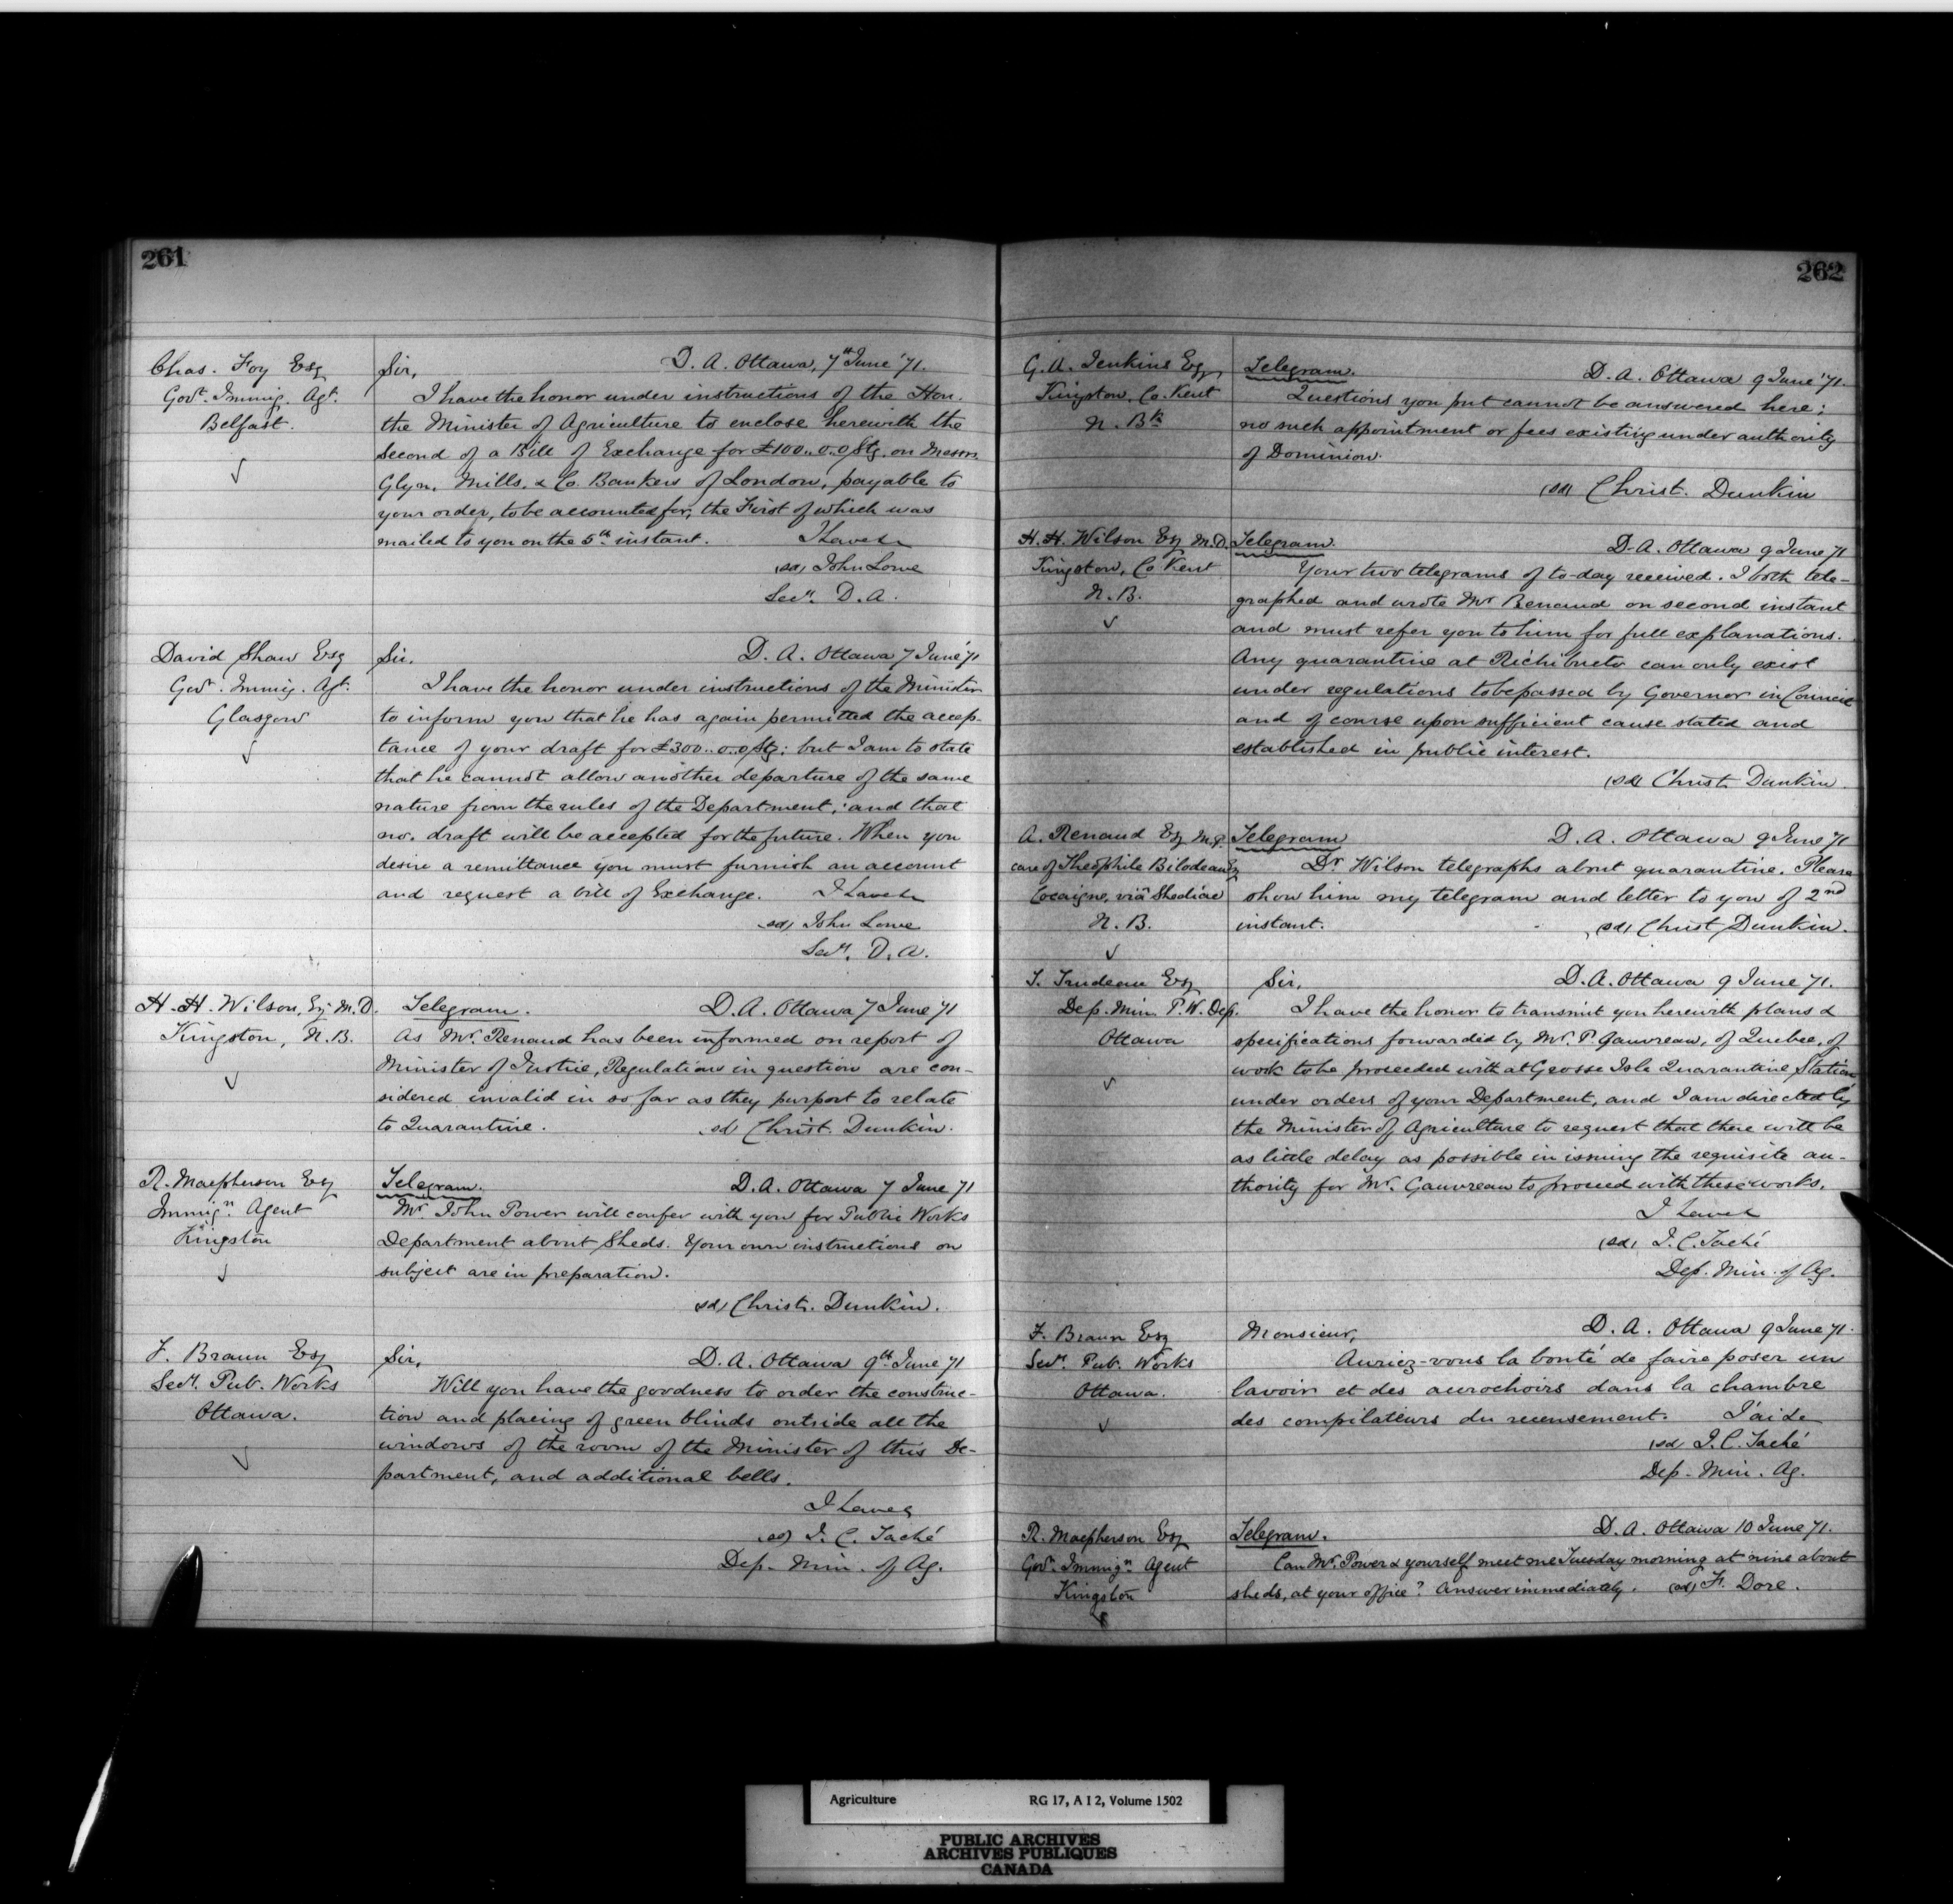 261
Chas. Foy Esq
Govt. Immig. Agt.
Belfast.
Sir, D. A. Ottawa, 7th June '71.
I have the honor under instructions of the Hon.
the Minister of Agriculture to enclose herewith the
Second of a Bill of Exchange for £100..0..0 Stg. on Messrs.
Glyn, Mills, & Co. Bankers of London, payable to
your order, to be accounted for, the First of which was
mailed to you on the 5th instant. I have &c
(sd) John Lowe
Secy. D. A.
David Shaw Esq
Govt. Immig. Agt.
Glasgow
Sir. D. A. Ottawa 7 June '71
I have the honor under instructions of the Minister
to inform you that he has again permitted the accep-
tance of your draft for £300..0..0 Stg: but I am to state
that he cannot allow another departure of the same
nature from the rules of the Department; and that
no. draft will be accepted for the future. When you
desire a remittance you must furnish an account
and request a bill of Exchange. I have &c
(sd) John Lowe
Secy. D. A.
H. H. Wilson, Esq. M. D.
Kingston, N. B.
Telegram. D. A. Ottawa 7 June '71
As Mr. Renaud has been informed on report of
Minister of Justice, Regulations in question are con-
sidered invalid in so far as they purport to relate
to Quarantine. (sd) Christ. Dunkin.
R. Macpherson Esq
Immign. Agent
Kingston
Telegram. D. A. Ottawa 7 June 71
Mr. John Power will confer with you for Public Works
Department about Sheds. Your own instructions on
subject are in preparation.
(sd) Christ. Dunkin.
F. Braun Esq
Secy. Pub. Works
Ottawa.
Sir, D. A. Ottawa 9th June '71
Will you have the goodness to order the construc-
tion and placing of green blinds outside all the
windows of the room of the Minister of this De-
partment, and additional bells.
I have &c
(sd) J. C. Taché
Dep. Min. of Ag.
262
G. A. Jenkins Esq
Kingston, Co. Kent
N. Bk
Telegram. D. A. Ottawa 9 June '71.
Questions you put cannot be answered here;
no such appointment or fees existing under authority
of Dominion.
(sd) Christ. Dunkin
H. H. Wilson Esq M. D.
Kingston, Co Kent
N. B.
Telegram. D. A. Ottawa 9 June 71
Your two telegrams of to-day received. I both tele-
graphed and wrote Mr Renaud on second instant
and must refer you to him for full explanations.
Any quarantine at Richibucto can only exist
under regulations to be passed by Governor in Council
and of course upon sufficient cause stated and
established in public interest.
(sd) Christ. Dunkin.
A. Renaud Esq M.P.
care of Théophile Bilodeau Esq
Cocaigne, viâ Shediac
N. B.
Telegram D. A. Ottawa 9 June 71
Dr. Wilson telegraphs about quarantine. Please
show him my telegram and letter to you of 2nd
instant. (sd) Christ Dunkin.
T. Trudeau Esq
Dep. Min. P. W. Dep.
Ottawa
Sir, D. A. Ottawa 9 June 71.
I have the honor to transmit you herewith plans &
specifications forwarded by Mr. P. Gauvreau, of Quebec, of
work to be proceeded with at Grosse Isle Quarantine Station
under orders of your Department, and I am directed by
the Minister of Agriculture to request that there will be
as little delay as possible in issuing the requisite au-
thority for Mr. Gauvreau to proceed with these works.
I have &
(sd) J. C. Taché
Dep. Min. of Ag.
F. Braun Esq
Secy. Pub. Works
Ottawa.
Monsieur, D. A. Ottawa 9 June 71.
Auriez-vous la bonté de faire poser un
lavoir et des accrochoirs dans la chambre
des compilateurs du recensement. J'ai &c
(sd) J. C. Taché
Dep. Min. Ag.
R. Macpherson Esq
Govt. Immign. Agent
Kingston
Telegram. D. A. Ottawa 10 June 71.
Can Mr. Power & yourself meet me Tuesday morning at nine about
sheds, at your office? Answer immediately. (sd) F. Dore.
Agriculture RG 17, A I 2, Volume 1502
PUBLIC ARCHIVES
ARCHIVES PUBLIQUES
CANADA